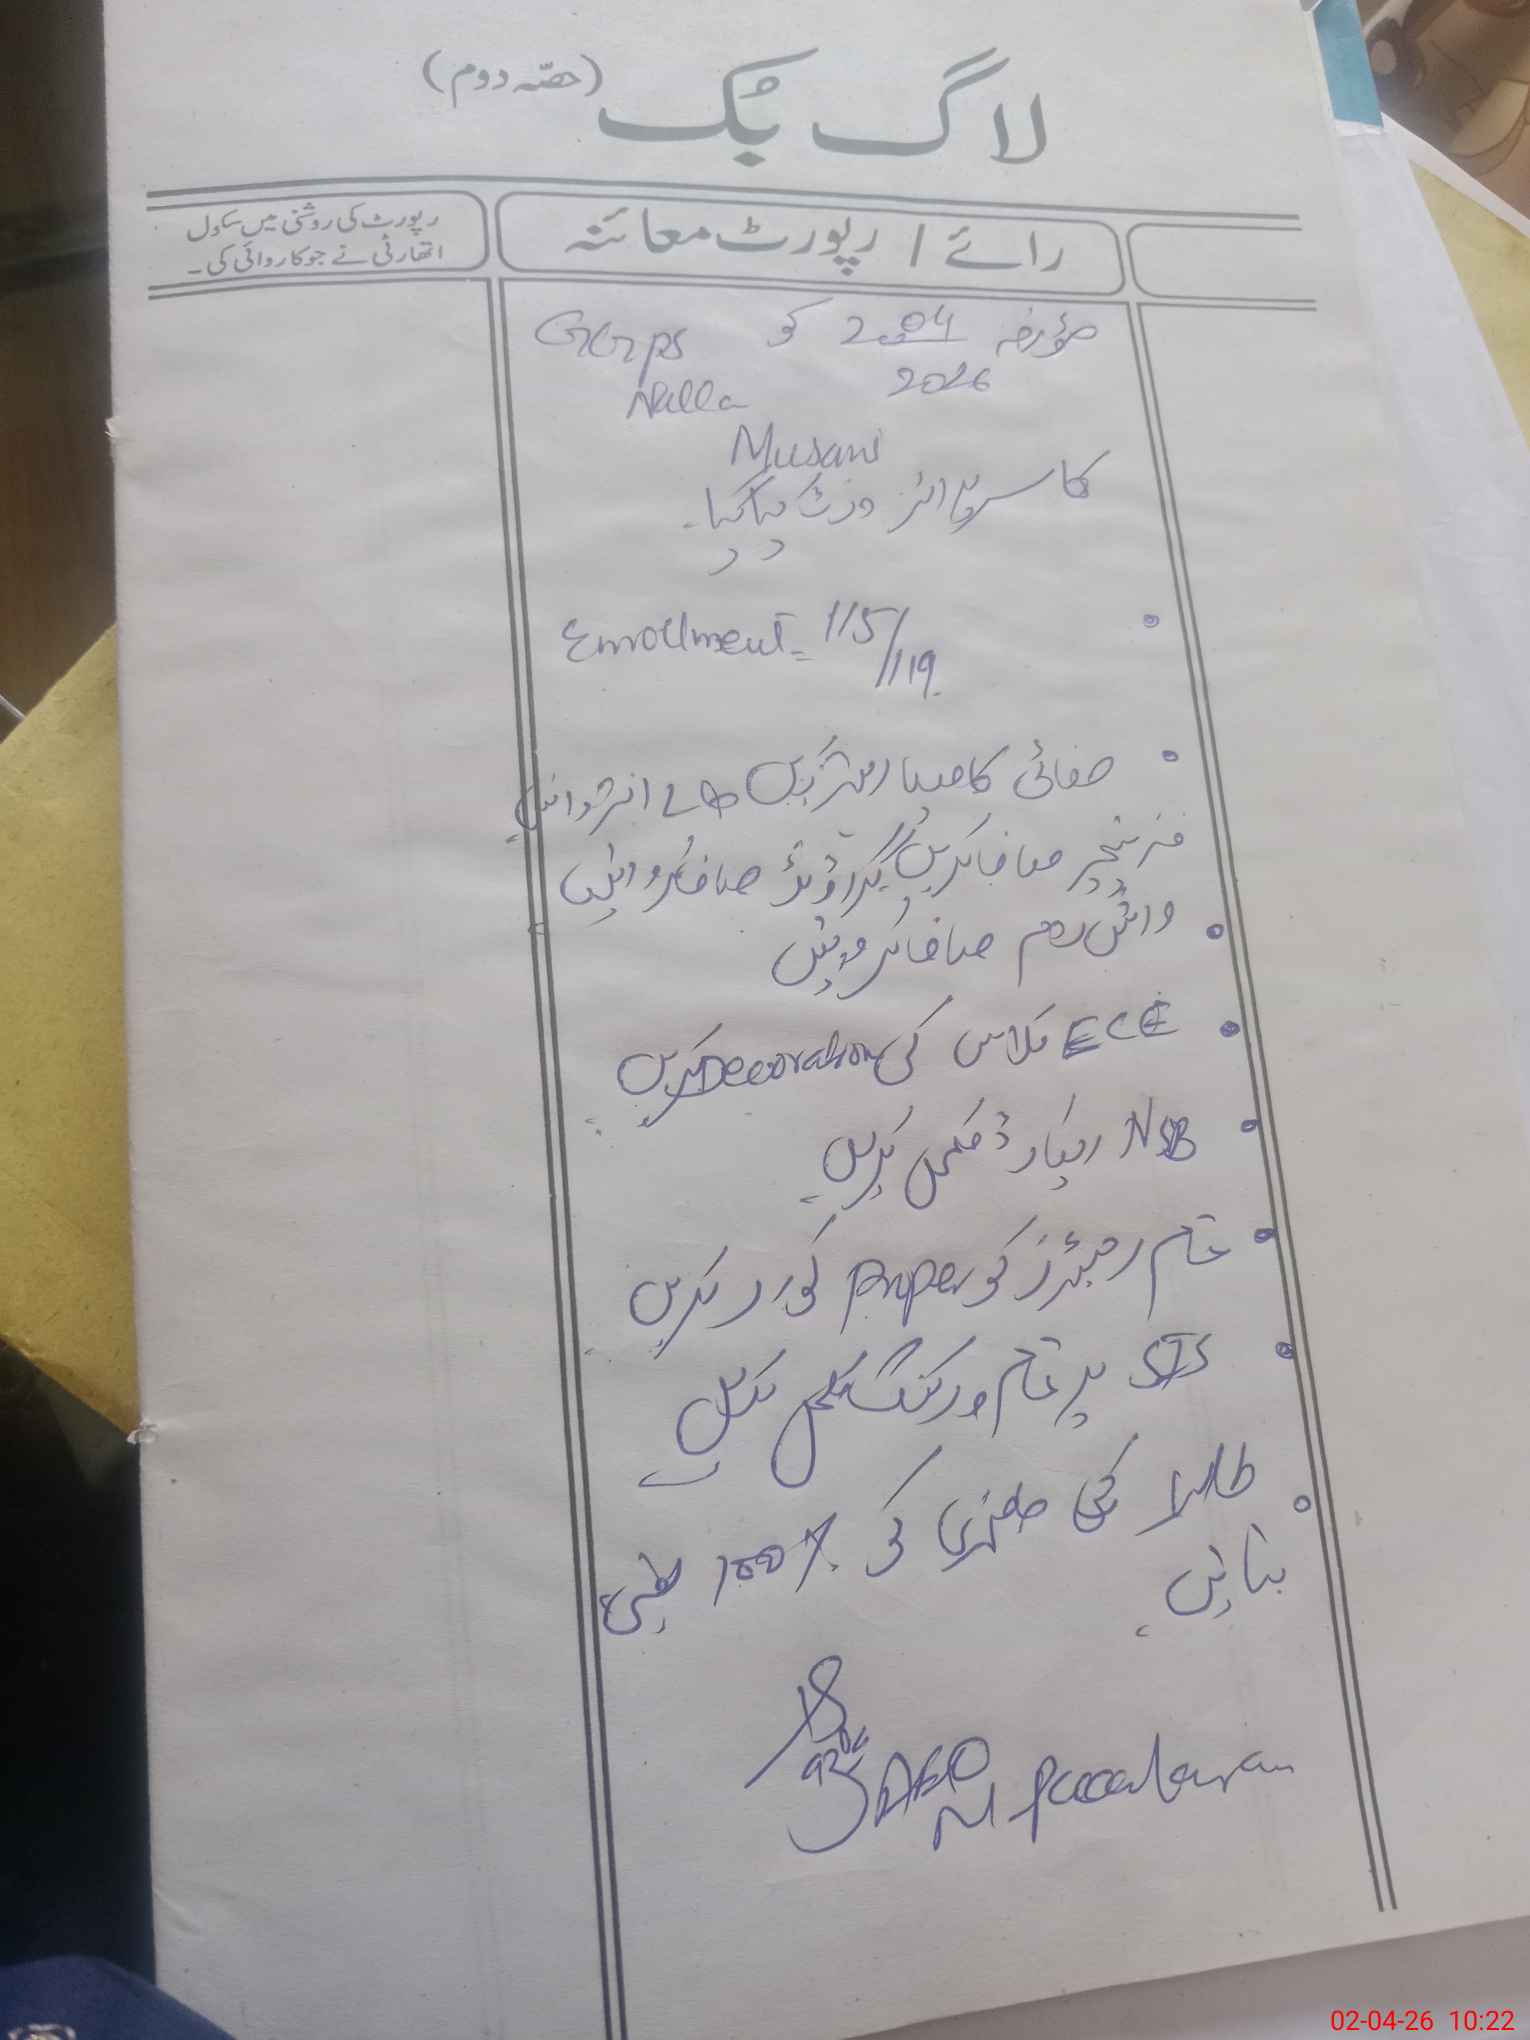 لاگ بُک (حصّہ دوم)
رائے / رپورٹ معائنہ
رپورٹ کی روشنی میں سکول
اتھارٹی نے جو کاروائی کی۔
مؤرخہ 2.04 کو GGPS
2026 Nulla
Musani
کا سرپرائز وزٹ کیا گیا۔
Enrollment = 115/119
صفائی کا معیار بہتر کریں
فرنیچر صاف کریں گراؤنڈ صاف کروائیں
واش روم صاف کروائیں
ECE کلاس کی Decoration کریں
NSB ریکارڈ مکمل کریں۔
تمام رجسٹرز کو proper کور کریں
SIS پر تمام ورکنگ مکمل کریں
طلبا کی حاضری کی 100% یقینی
بنائیں۔
AEO
02-04-26 10:22